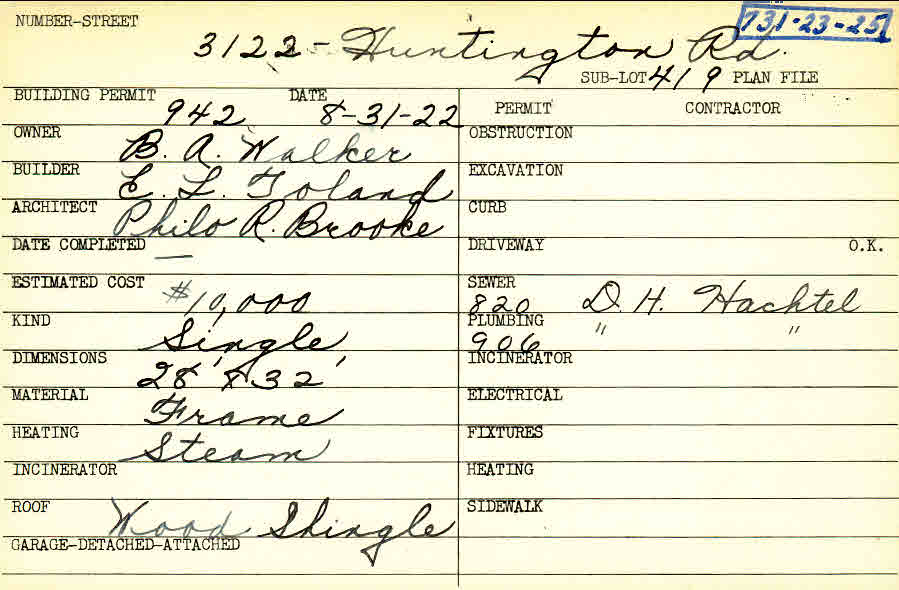 NUMBER-STREET
731-23-25
3122 - Huntington Rd.
SUB-LOT 419 PLAN FILE
BUILDING PERMIT 942 DATE 8-31-22
PERMIT CONTRACTOR
OWNER B. A. Walker
OBSTRUCTION
BUILDER E. L. Toland
EXCAVATION
ARCHITECT Philo R. Brooke
CURB
DATE COMPLETED —
DRIVEWAY O.K.
ESTIMATED COST $10,000
SEWER 820 D. H. Hachtel
KIND Single
PLUMBING 906 " "
DIMENSIONS 28' x 32'
INCINERATOR
MATERIAL Frame
ELECTRICAL
HEATING Steam
FIXTURES
INCINERATOR
HEATING
ROOF Wood Shingle
SIDEWALK
GARAGE-DETACHED-ATTACHED